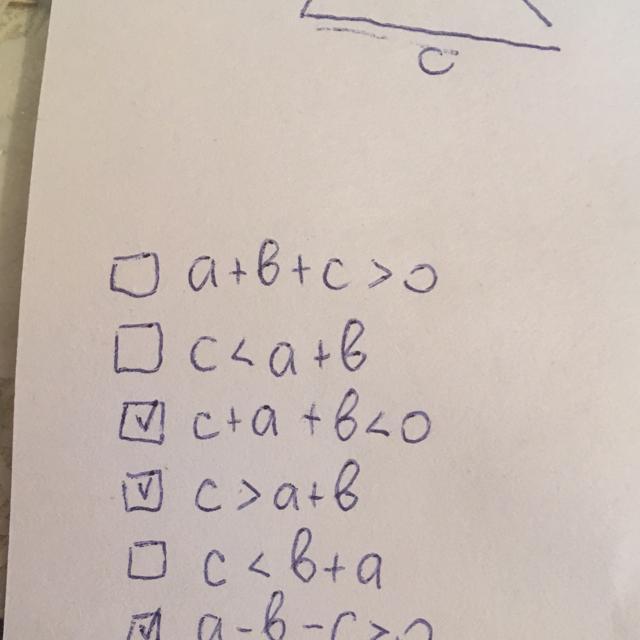 c
a+b+c>0
c<a+b
c+a+b<0
c>a+b
c<b+a
a-b-c>0